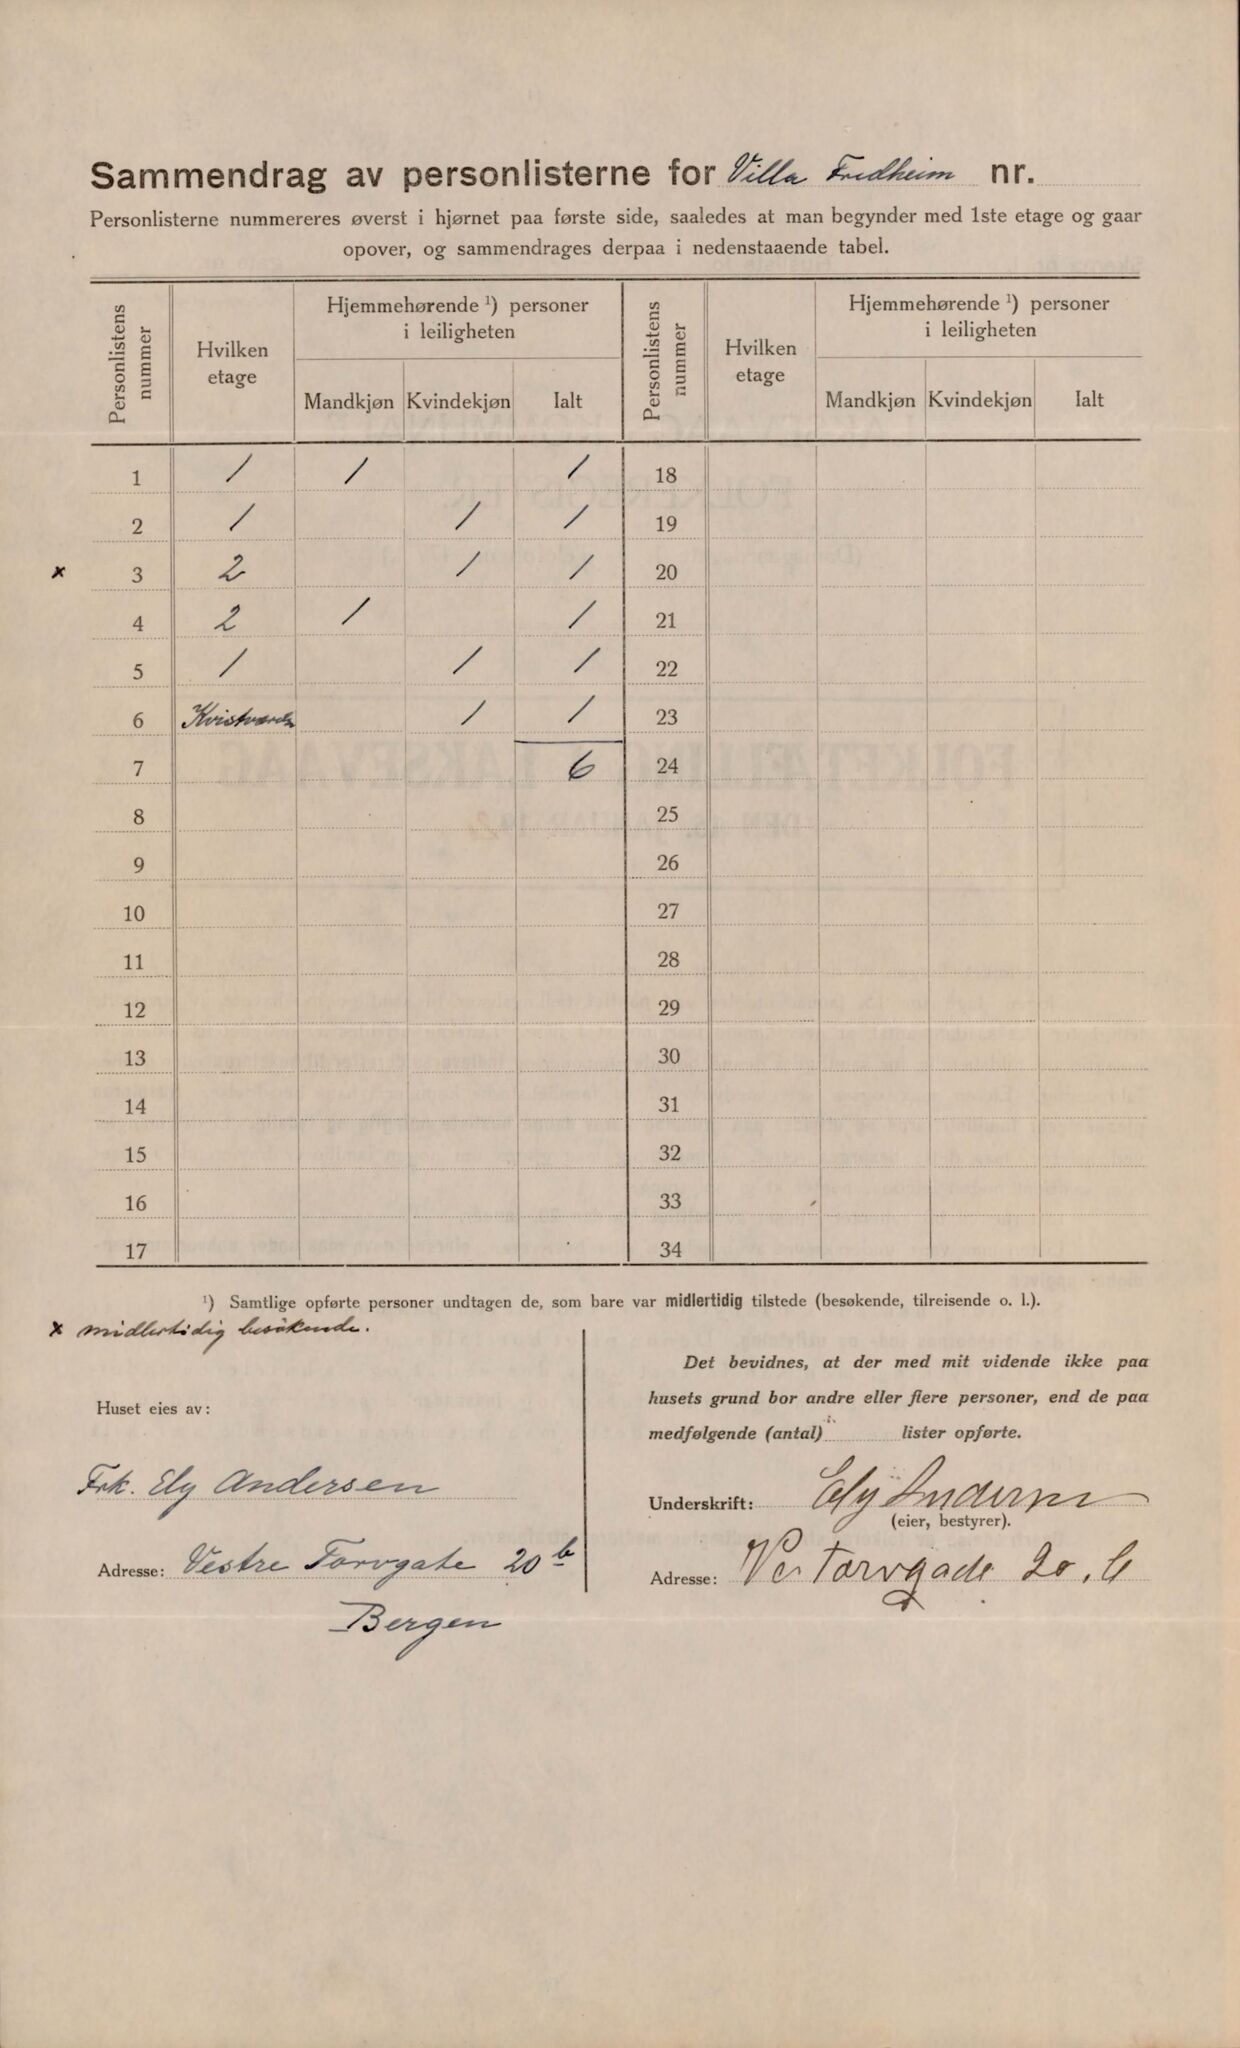 Sammendrag av personlisterne for Villa Fredheim nr.
Personlisterne nummereres øverst i hjørnet paa første side, saaledes at man begynder med 1ste etage og gaar
opover, og sammendrages derpaa i nedenstaaende tabel.
Personlistens nummer | Hvilken etage | Hjemmehørende ¹) personer i leiligheten | Personlistens nummer | Hvilken etage | Hjemmehørende ¹) personer i leiligheten
Mandkjøn | Kvindekjøn | Ialt | Mandkjøn | Kvindekjøn | Ialt
1 | 1 | 1 | | 1 | 18
2 | 1 | | 1 | 1 | 19
x 3 | 2 | | 1 | 1 | 20
4 | 2 | 1 | | 1 | 21
5 | 1 | | 1 | 1 | 22
6 | | | 1 | 1 | 23
7 | | | | 6 | 24
8 | 25
9 | 26
10 | 27
11 | 28
12 | 29
13 | 30
14 | 31
15 | 32
16 | 33
17 | 34
¹) Samtlige opførte personer undtagen de, som bare var midlertidig tilstede (besøkende, tilreisende o. l.).
x midlertidig besökende.
Huset eies av:
Frk. Ely Andersen
Adresse: Vestre Torvgate 20 b
Bergen
Det bevidnes, at der med mit vidende ikke paa
husets grund bor andre eller flere personer, end de paa
medfølgende (antal) lister opførte.
Underskrift: Ely Andersen
(eier, bestyrer).
Adresse: Ves Torvgade 20. b